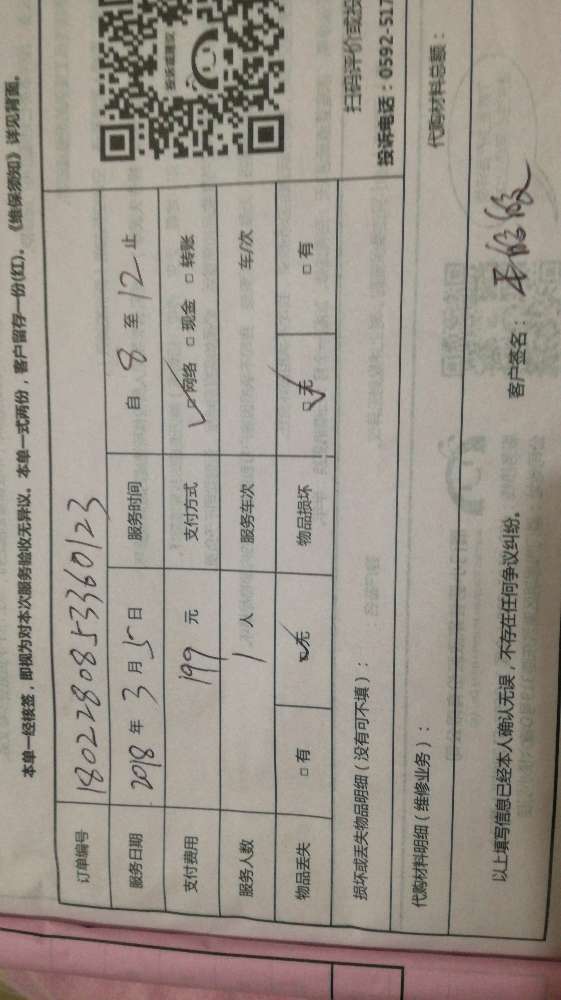 投诉或建议
扫码评价或投
投诉电话：0592-517
本单一经核签，即视为对本次服务验收无异议。本单一式两份，客户留存一份(红)。《维保须知》详见背面。
订单编号 1802280853360123
服务日期 2018 年 3 月 5 日 服务时间 自 8 至 12 止
支付费用 199 元 支付方式 ☑网络 □现金 □转账
服务人数 1 人 服务车次 车/次
物品丢失 □有 ☑无 物品损坏 ☑无 □有
损坏或丢失物品明细（没有可不填）：
代购材料明细（维修业务）： 代购材料总额：
以上填写信息已经本人确认无误，不存在任何争议纠纷。 客户签名：